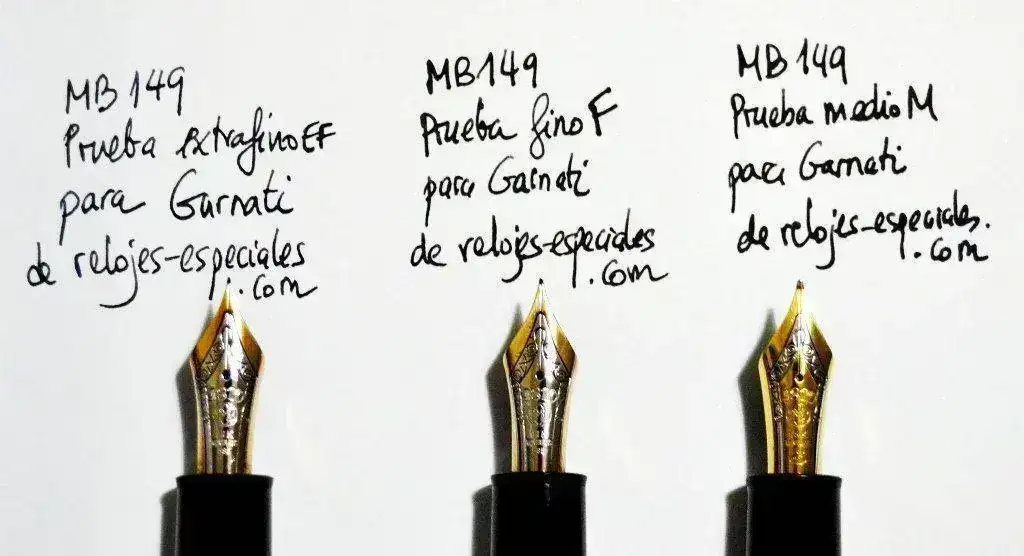 MB 149
Prueba extrafino EF
para Garnati
de relojes-especiales
.com
MB 149
Prueba fino F
para Garnati
de relojes-especiales
.com
MB 149
Prueba medio M
para Garnati
de relojes-especiales.
.com